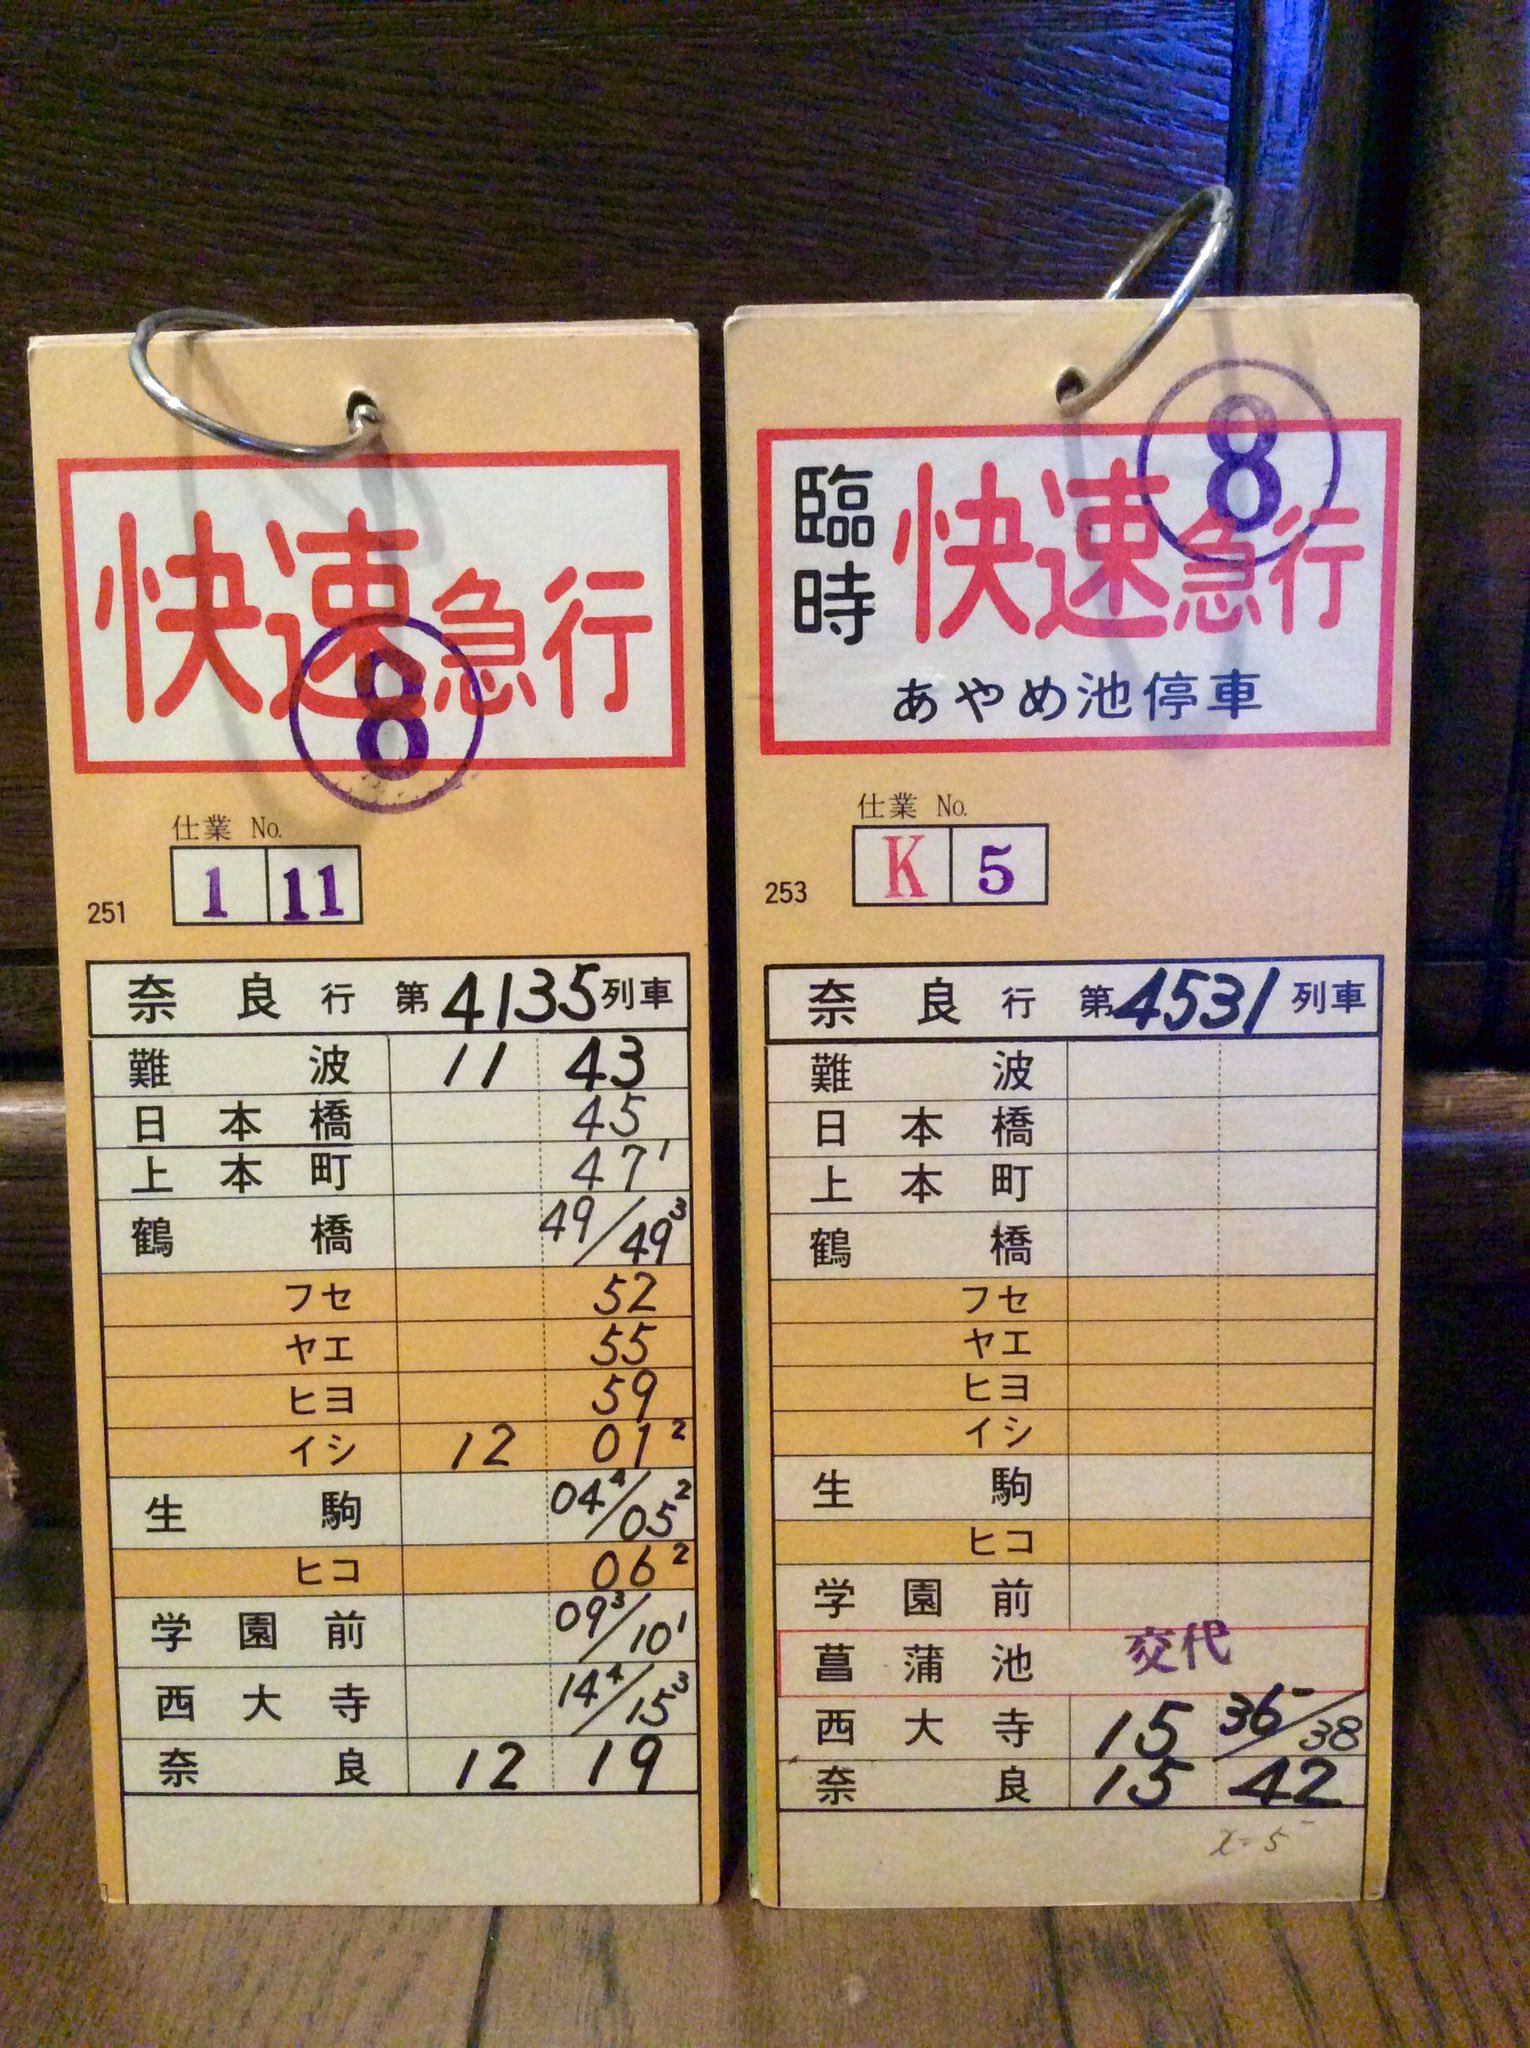 快速急行
8
仕業 No.
1 11
251
奈良行 第4135列車
難波 11 43
日本橋 45
上本町 47 1
鶴橋 49/49 3
フセ 52
ヤエ 55
ヒヨ 59
イシ 12 01 2
生駒 04 4/05 2
ヒコ 06 2
学園前 09 3/10 1
西大寺 14 4/15 3
奈良 12 19
8
臨時 快速急行
あやめ池停車
仕業 No.
K 5
253
奈良行 第4531列車
難波
日本橋
上本町
鶴橋
フセ
ヤエ
ヒヨ
イシ
生駒
ヒコ
学園前
菖蒲池 交代
西大寺 15 36-/38
奈良 15 42